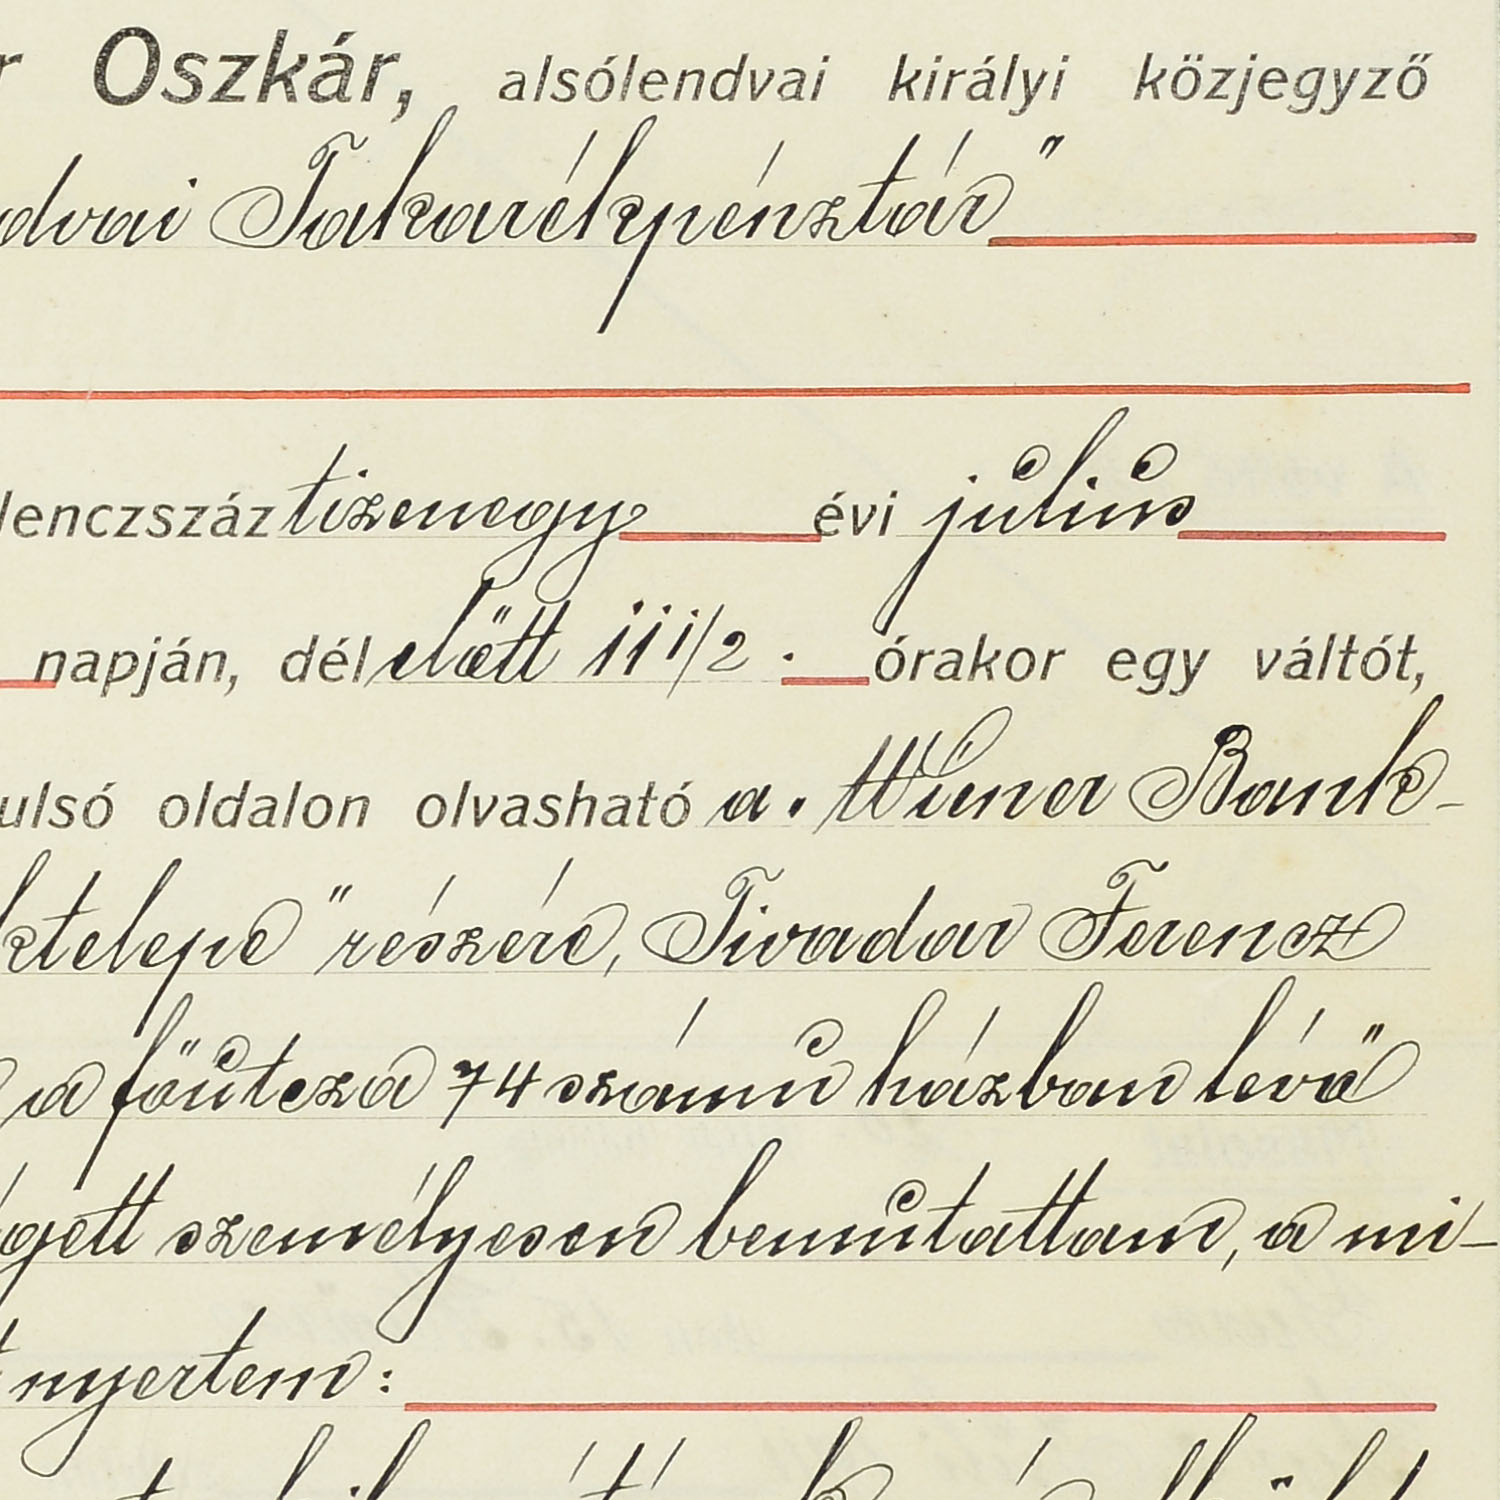 r Oszkár, alsólendvai királyi közjegyző
dvai Takarékpénztár"
lenczszáz tizenegy évi július
napján, délelőtt 11 1/2. órakor egy váltót,
ulsó oldalon olvasható a. Wiener Bank-
telepe" részére, Tivadar Ferencz
a főúteza 74 számú házban lévő
gett személyesen bemutattam, a mi-
t nyertem: